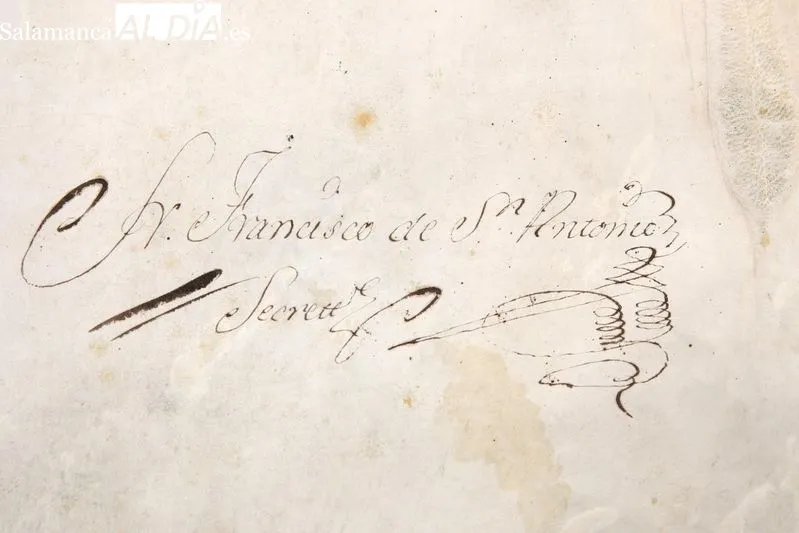 Salamanca AL DÍA.es
Fr. Francisco de Sn. Antonio
Secrett.